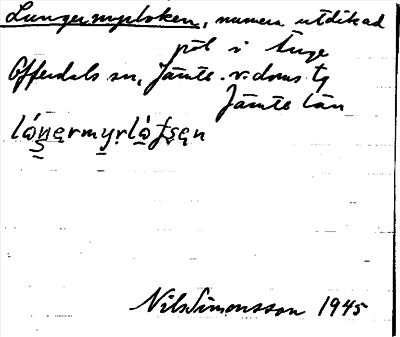 Lungermyrloken, numera utdikad
pöl i Änge
Offerdals sn, Jämte. v. doms tg
Jämte län
lǻŋermyrlǻƫsen
Nils Simonsson 1945